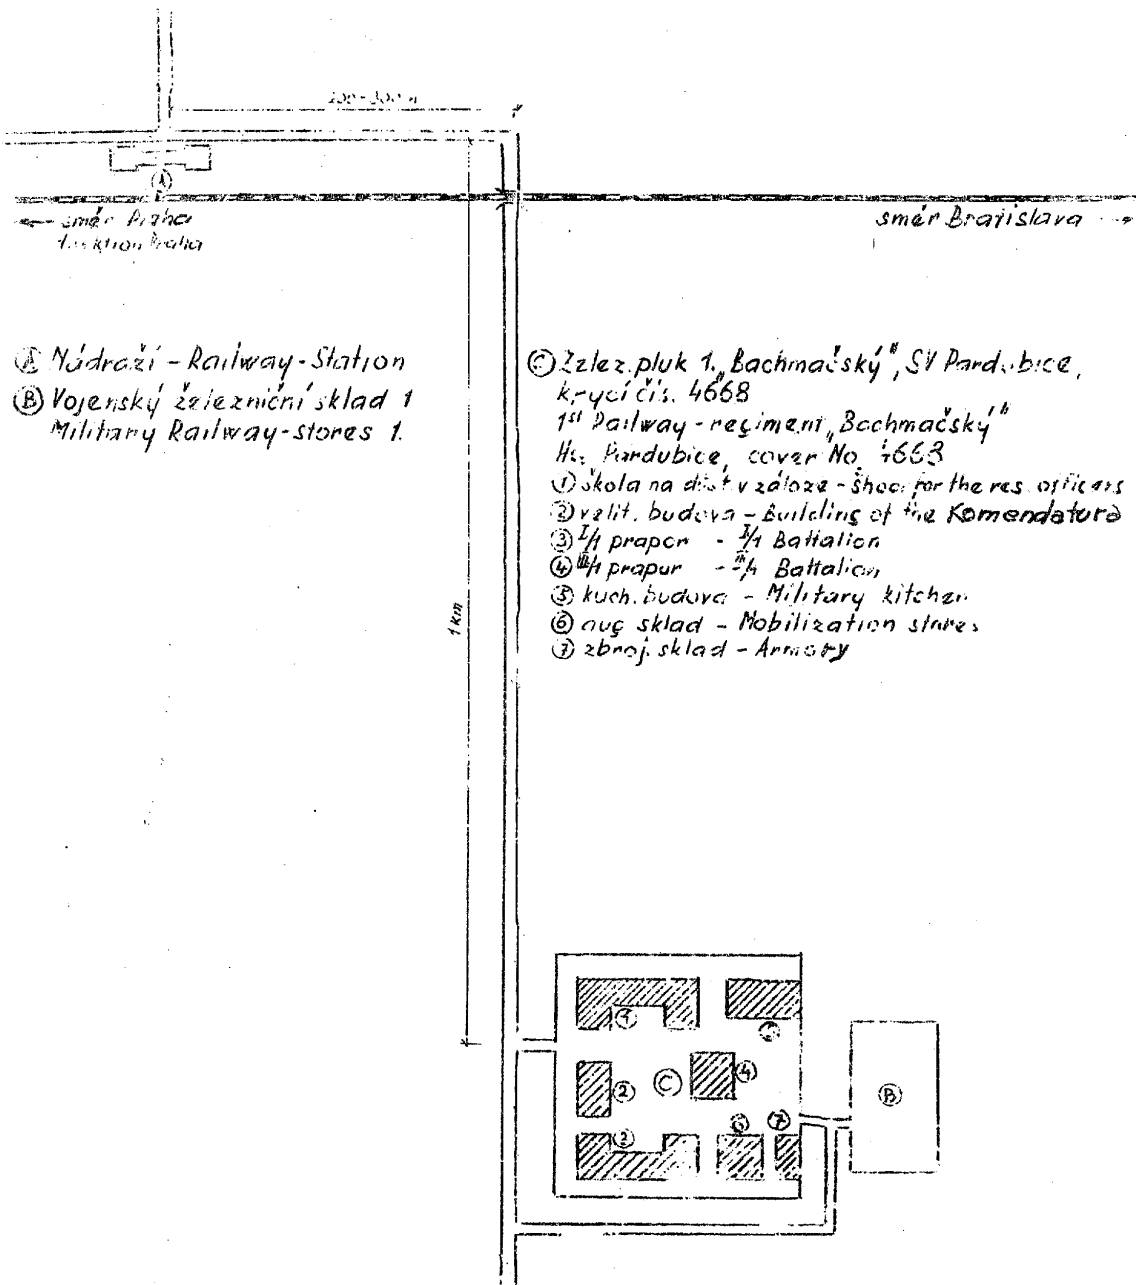 200-300 m
Ⓐ
← směr Praha
směr Bratislava →
Ⓐ Nádraží - Railway-Station
Ⓑ Vojenský železniční sklad 1
Military Railway-stores 1.
Ⓒ Želez. pluk 1. „Bachmačský", SV Pardubice,
krycí čís. 4668
1st Railway-regiment „Bachmačský"
Pardubice, cover No 4668
① škola na důst. v záloze - for the res. officers
② velit. budova - Building of the Komendatura
③ I/1 prapor - I/1 Battalion
④ III/1 prapor - III/1 Battalion
⑤ kuch. budova - Military kitchen
⑥ aug sklad - Mobilization stores
⑦ zbroj. sklad - Armory
1 km
①
②
Ⓒ
④
Ⓑ
⑥
⑦